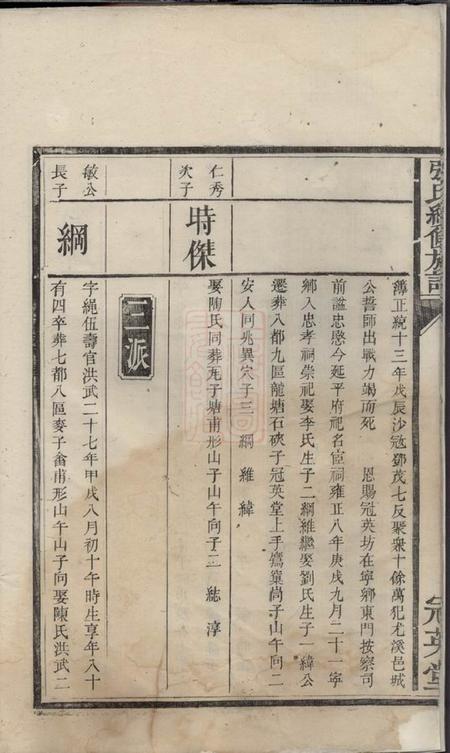 張氏續修族譜
冠英堂
簿正統十三年戊辰沙冦鄧茂七反聚衆十餘萬犯尤溪邑城
公誓師出戰力竭而死 恩賜冠英坊在寧鄉東門按察司
前謚忠愍今延平府祀名宦祠雍正八年庚戌九月二十一寧
鄉入忠孝祠崇祀娶李氏生子二綱維繼娶劉氏生子一緯公
遷葬八都九區龍塘石硤子冠英堂上手鷰窠尚子山午向二
安人同兆異穴子三 綱 維 緯
仁秀次子
時傑
娶陶氏同葬瓦子塘甫形山子山午向子二 綕 淳
三派
敏公長子
綱
字繩伍壽官洪武二十七年甲戌八月初十午時生享年八十
有四卒葬七都八區麥子畬甫形山午山子向娶陳氏洪武二